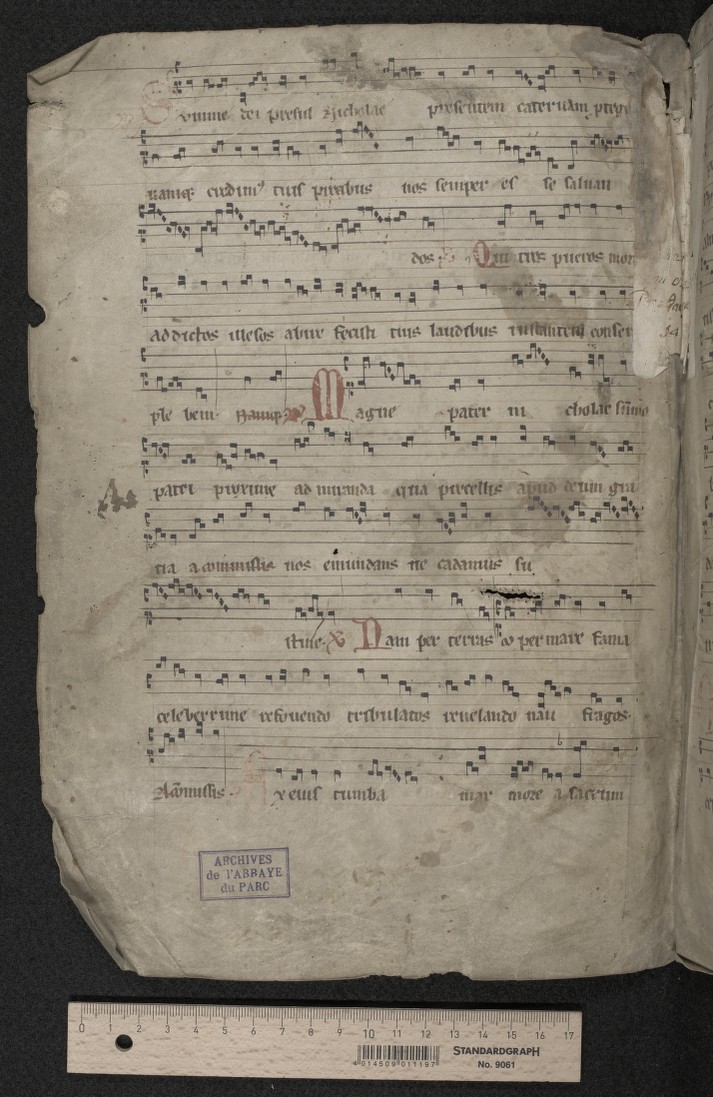 Summe dei presul Nicholae presentem cateruam ptege
namq credim⁹ tuis precibus nos semper ee se saluan
dos. Qui tres pueros mor
ad dictos illesos abire fecisti tuis laudibus instantem conser
ple bem. Namq Magne pater ni cholae summo
patri proxime ad miranda qua precellis apud deum gra
tia a commissis nos emundans ne cadamus su
stine. Nam per terras & per mare fama
celeberrime refouendo tribulatos reuelando nau fragos.
A comissis. Ex eius tumba mar more a sacrum
ARCHIVES
de l'ABBAYE
du PARC
0 1 2 3 4 5 6 7 8 9 10 11 12 13 14 15 16 17
4 014509 011197
STANDARDGRAPH
No. 9061